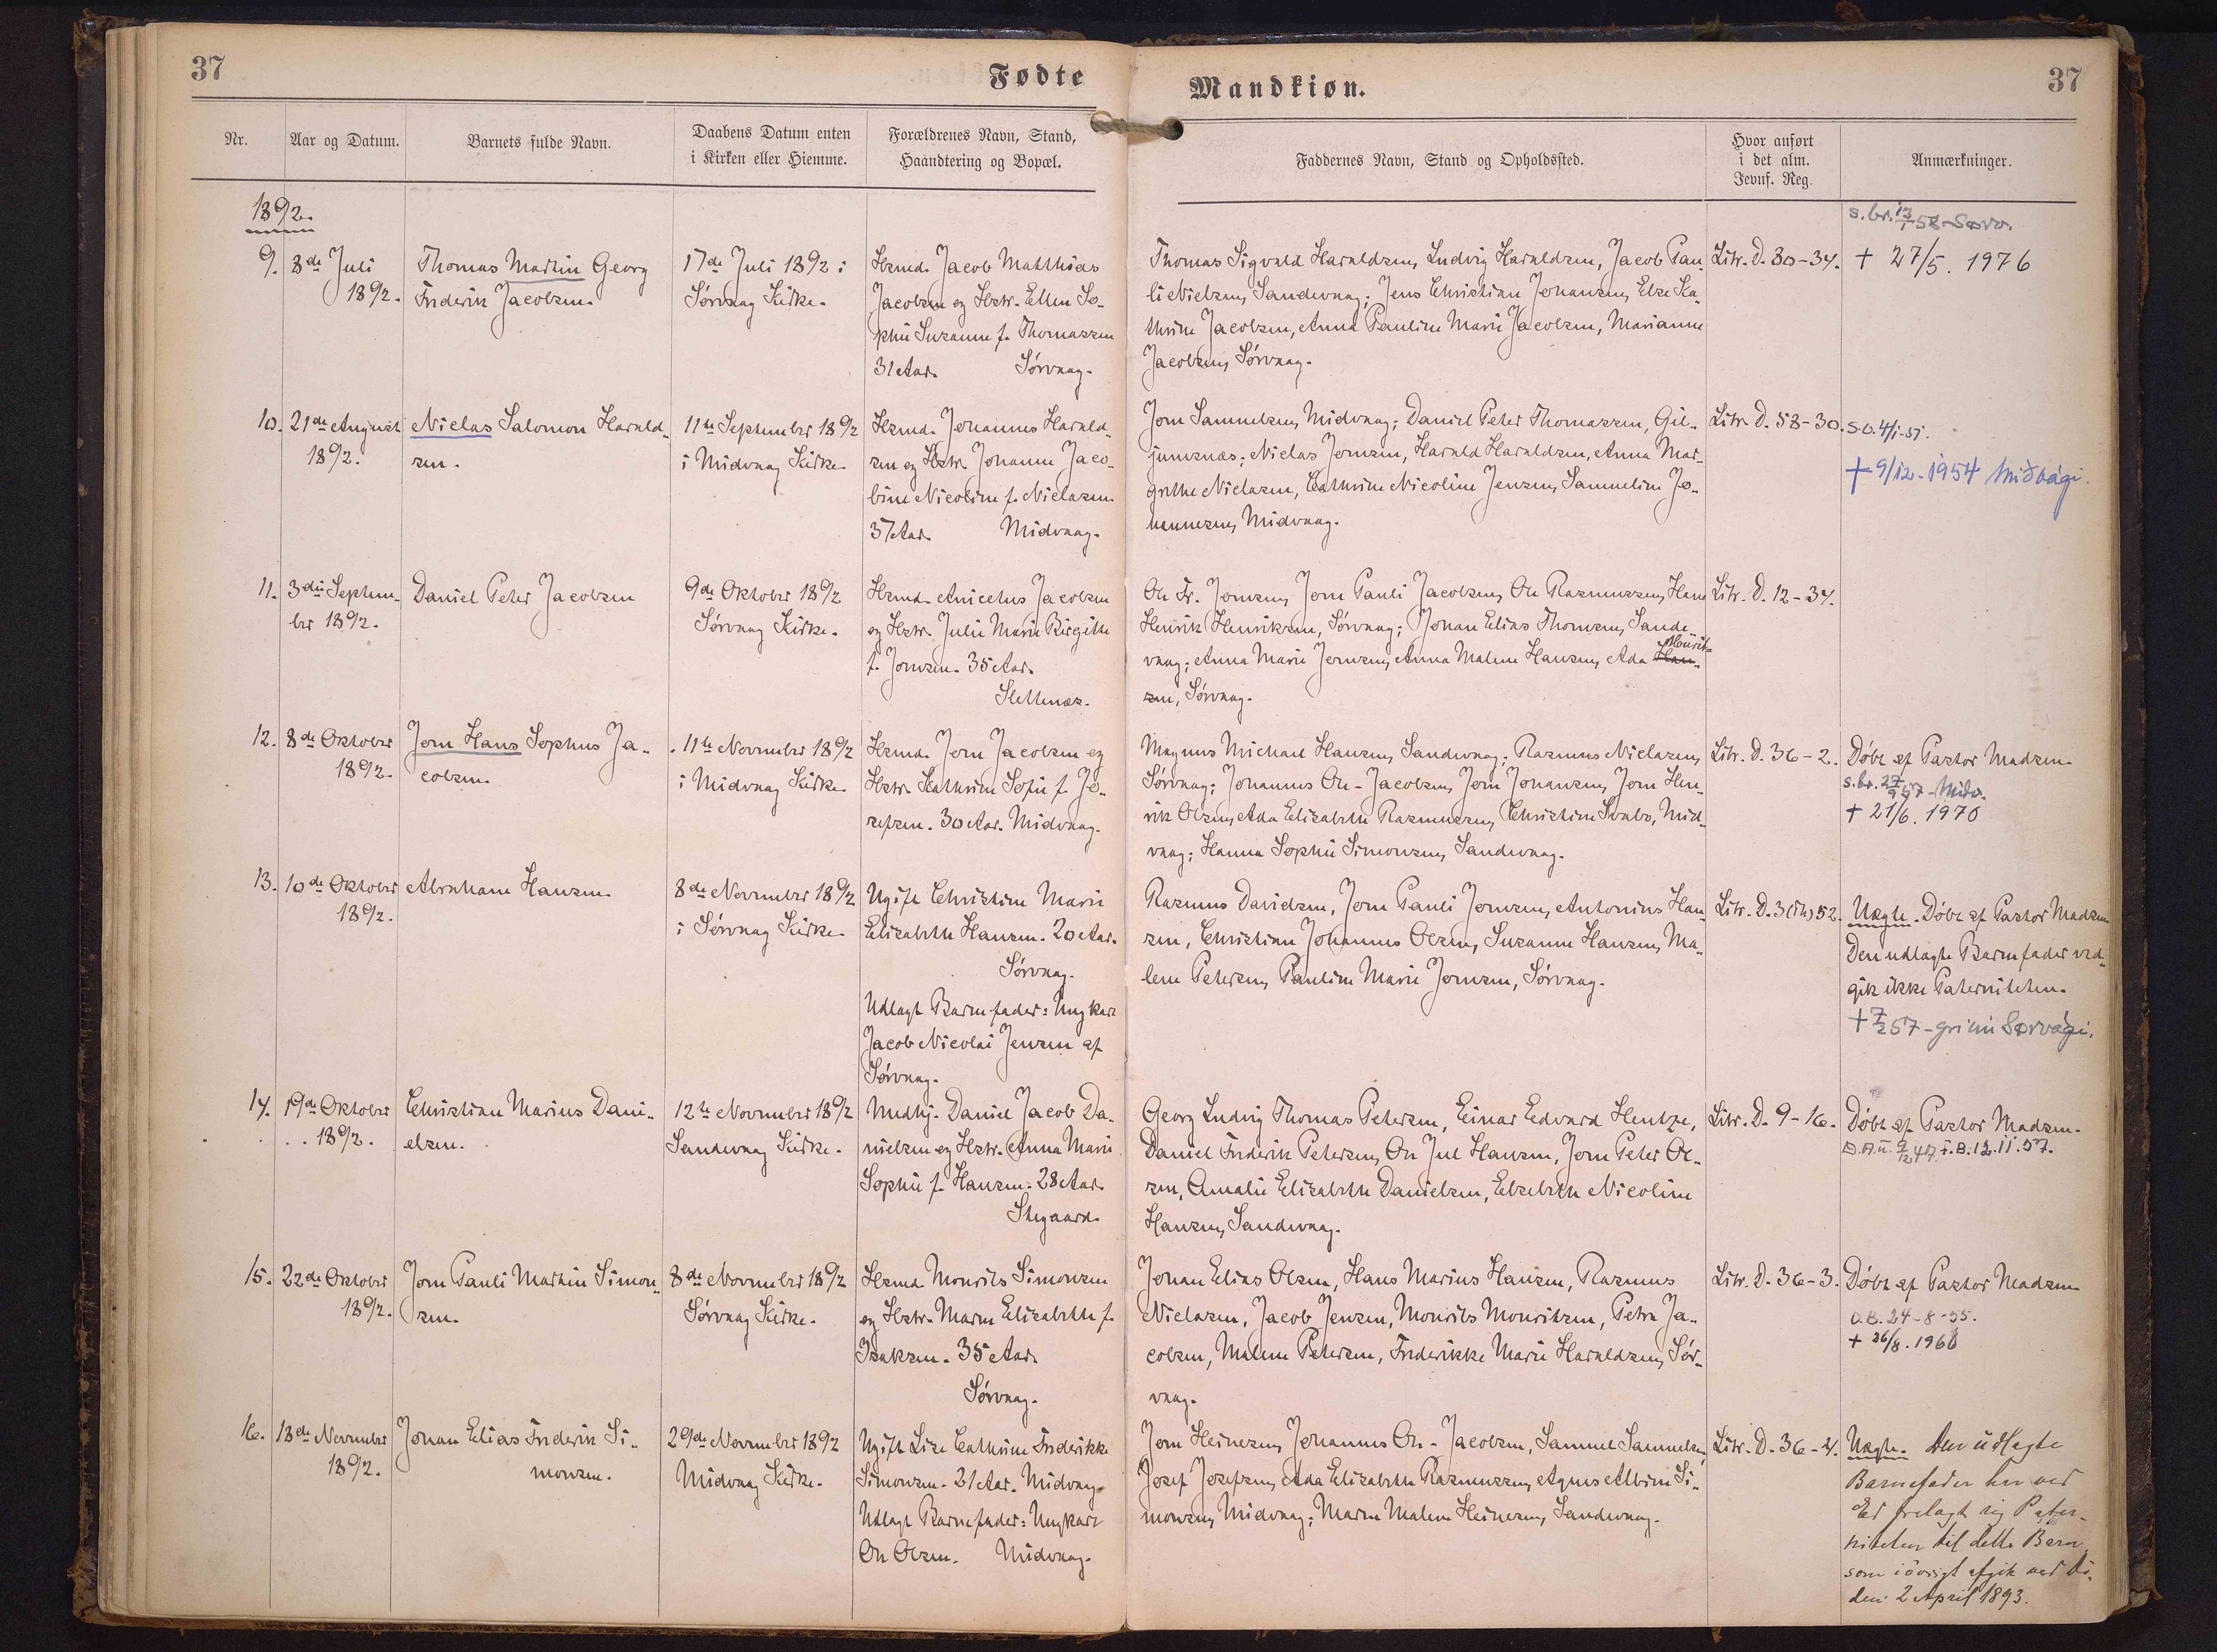 37
Fødte
Nr.
Aar og Datum.
Barnets fulde Navn.
Daabens Datum enten
i Kirken eller Hiemme.
Forældrenes Navn, Stand,
Haandtering og Bopæl.
Mandkiøn.
37
Faddernes Navn, Stand og Opholdssted.
Hvor anført
i det alm.
Jevnf. Reg.
Anmærkninger.
1892.
9.
8de Juli
1892.
Thomas Martin Georg
Frederik Jacobsen.
17de Juli 1892 i
Sórvaag Kirke.
Hsmd. Jacob Matthias
Jacobsen og Hstr. Ellen So-
phie Susanne f. Thomassen
31 Aar. Sórvaag.
Thomas Sigvald Haraldsen, Ludvig Haraldsen, Jacob Pau-
li Nielsen, Sandevaag; Jens Christian Johansen, Else Ka-
thrine Jacobsen, Anna Pauline Marie Jacobsen, Marianne
Jacobsen, Sórvaag.
Litr. D. 80-34.
s.br. 13/1 58-Sørv.
+ 27/5. 1976
10.
21de August
1892.
Niclas Salomon Harald-
sen.
11te September 1892
i Midvaag Kirke.
Hsmd. Johannes Harald-
sen og Hstr. Johanne Jaco-
bine Nicoline f. Niclasen
37 Aar. Midvaag.
Joen Samuelsen, Midvaag; Daniel Peter Thomassen, Gil-
jumsnæs; Niclas Joensen, Harald Haraldsen, Anna Mar-
grethe Niclasen, Cathrine Nicoline Jensen, Samueline Jo-
hannesen, Midvaag.
Litr. D. 58-30.
s.b. 4/1-51.
+ 9/12-1954 Miðvági.
11.
3die Septem-
ber 1892.
Daniel Peter Jacobsen
9de Oktober 1892
Sórvaag Kirke.
Hsmd. Anicetus Jacobsen
og Hstr. Julie Marie Birgitte
f. Joensen. 35 Aar.
Slettenæs.
Ole Fr. Joensen, Joen Pauli Jacobsen, Ole Rasmussen, Hans
Henrik Henriksen, Sórvaag; Johan Elias Thomsen, Sande-
vaag; Anna Marie Joensen, Anna Malene Hansen, Ada Han- Mourit-
sen, Sórvaag.
Litr. D. 12-34.
12.
8de Oktober
1892.
Joen Hans Sophus Ja-
cobsen.
11te November 1892
i Midvaag Kirke.
Hsmd. Joen Jacobsen og
Hstr. Kathrine Sofie f. Jo-
sefsen. 30 Aar. Midvaag.
Magnus Michael Hansen, Sandevaag; Rasmus Niclasen,
Sórvaag; Johannes Ole-Jacobsen, Joen Johansen, Joen Hen-
rik Olsen, Ada Elisabeth Rasmussen, Christine Svabo, Mid-
vaag; Hanna Sophie Simonsen, Sandevaag.
Litr. D. 36-2.
Dóbt af Pastor Madsen.
s.br. 27/9 57-Miðv.
+ 21/6. 1970
13.
10de Oktober
1892.
Abraham Hansen.
8de November 1892
i Sórvaag Kirke.
Ugift Christine Marie
Elisabeth Hansen. 20 Aar.
Sórvaag.
Udlagt Barnefader: Ungkarl
Jacob Nicolai Jensen af
Sórvaag.
Rasmus Davidsen, Joen Pauli Joensen, Antonius Han-
sen, Christian Johannes Olsen, Susanne Hansen, Ma-
lene Petersen, Pauline Marie Joensen, Sórvaag.
Litr. D. 3(th) 52.
Uægte. Dóbt af Pastor Madsen
Den udlagte Barnefader ved-
gik ikke Paterniteten.
+ 7/2 57-grivin Sørvági.
14.
19de Oktober
1892.
Christian Marius Dani-
elsen.
12te November 1892
Sandevaag Kirke.
Medhj. Daniel Jacob Da-
nielsen og Hstr. Anna Marie
Sophie f. Hansen. 28 Aar.
Stegaard.
Georg Ludvig Thomas Petersen, Einar Edvard Hentze,
Daniel Frederik Petersen, Ole Jul Hansen, Joen Peter Ol-
sen, Amalie Elisabeth Danielsen, Elsebeth Nicoline
Hansen, Sandevaag.
Litr. D. 9-16.
Dóbt af Pastor Madsen.
D.A.u. 9/12 47. F.B. 12.11.57.
15.
22de Oktober
1892.
Joen Pauli Martin Simon-
sen.
8de November 1892
Sórvaag Kirke.
Hsmd. Mourits Simonsen
og Hstr. Maren Elisabeth f.
Isaksen. 35 Aar.
Sórvaag.
Johan Elias Olsen, Hans Marius Hansen, Rasmus
Niclasen, Jacob Jensen, Mourits Mouritsen, Petra Ja-
cobsen, Malene Petersen, Frederikke Marie Haraldsen, Sór-
vaag.
Litr. D. 36-3.
Dóbt af Pastor Madsen
D.B. 24-8-55.
+ 26/8. 1960
16.
13de November
1892.
Johan Elias Frederik Si-
monsen.
29de November 1892
Midvaag Kirke.
Ugift Lise Cathrine Frederikke
Simonsen. 21 Aar. Midvaag.
Udlagt Barnefader: Ungkarl
Ole Olsen. Midvaag.
Joen Heinesen, Johannes Ole-Jacobsen, Samuel Samuelsen,
Josef Josefsen, Ada Elisabeth Rasmussen, Agnes Albine Si-
monsen, Midvaag; Maren Malene Heinesen, Sandevaag.
Litr. D. 36-4.
Uægte. Den udlagte
Barnefader har ved
Ed fralagt sig Pater-
niteten til dette Barn,
som iövrigt afgik ved Dö-
den 2 April 1893.